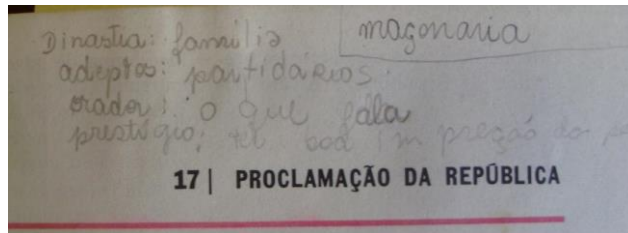 Dinastia: família
maçonaria
adeptos: partidários
orador: o que fala
prestígio; ter boa im preção da
17 | PROCLAMAÇÃO DA REPÚBLICA